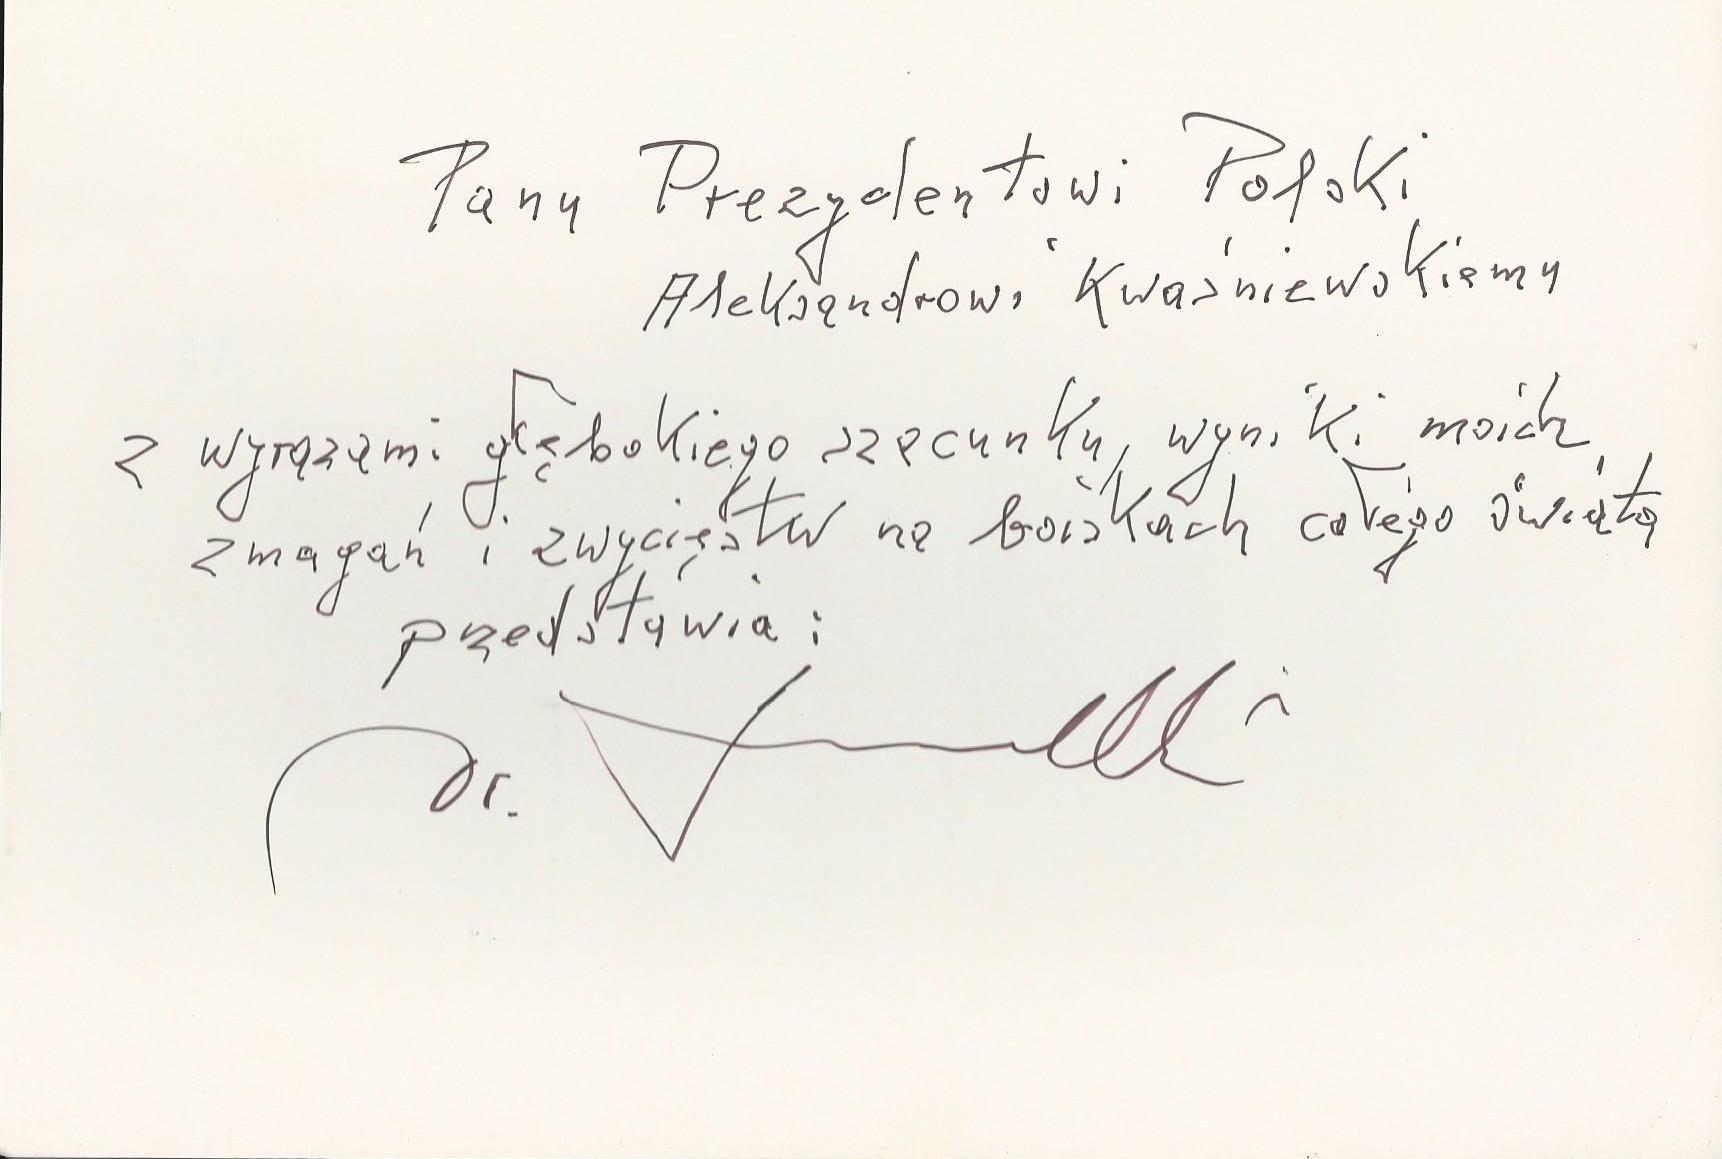 Panu Prezydentowi Polski
Aleksandrowi Kwaśniewskiemu
z wyrazami głębokiego szacunku, wyniki moich
zmagań i zwycięstw na boiskach całego świata
przedstawia:
Dr.